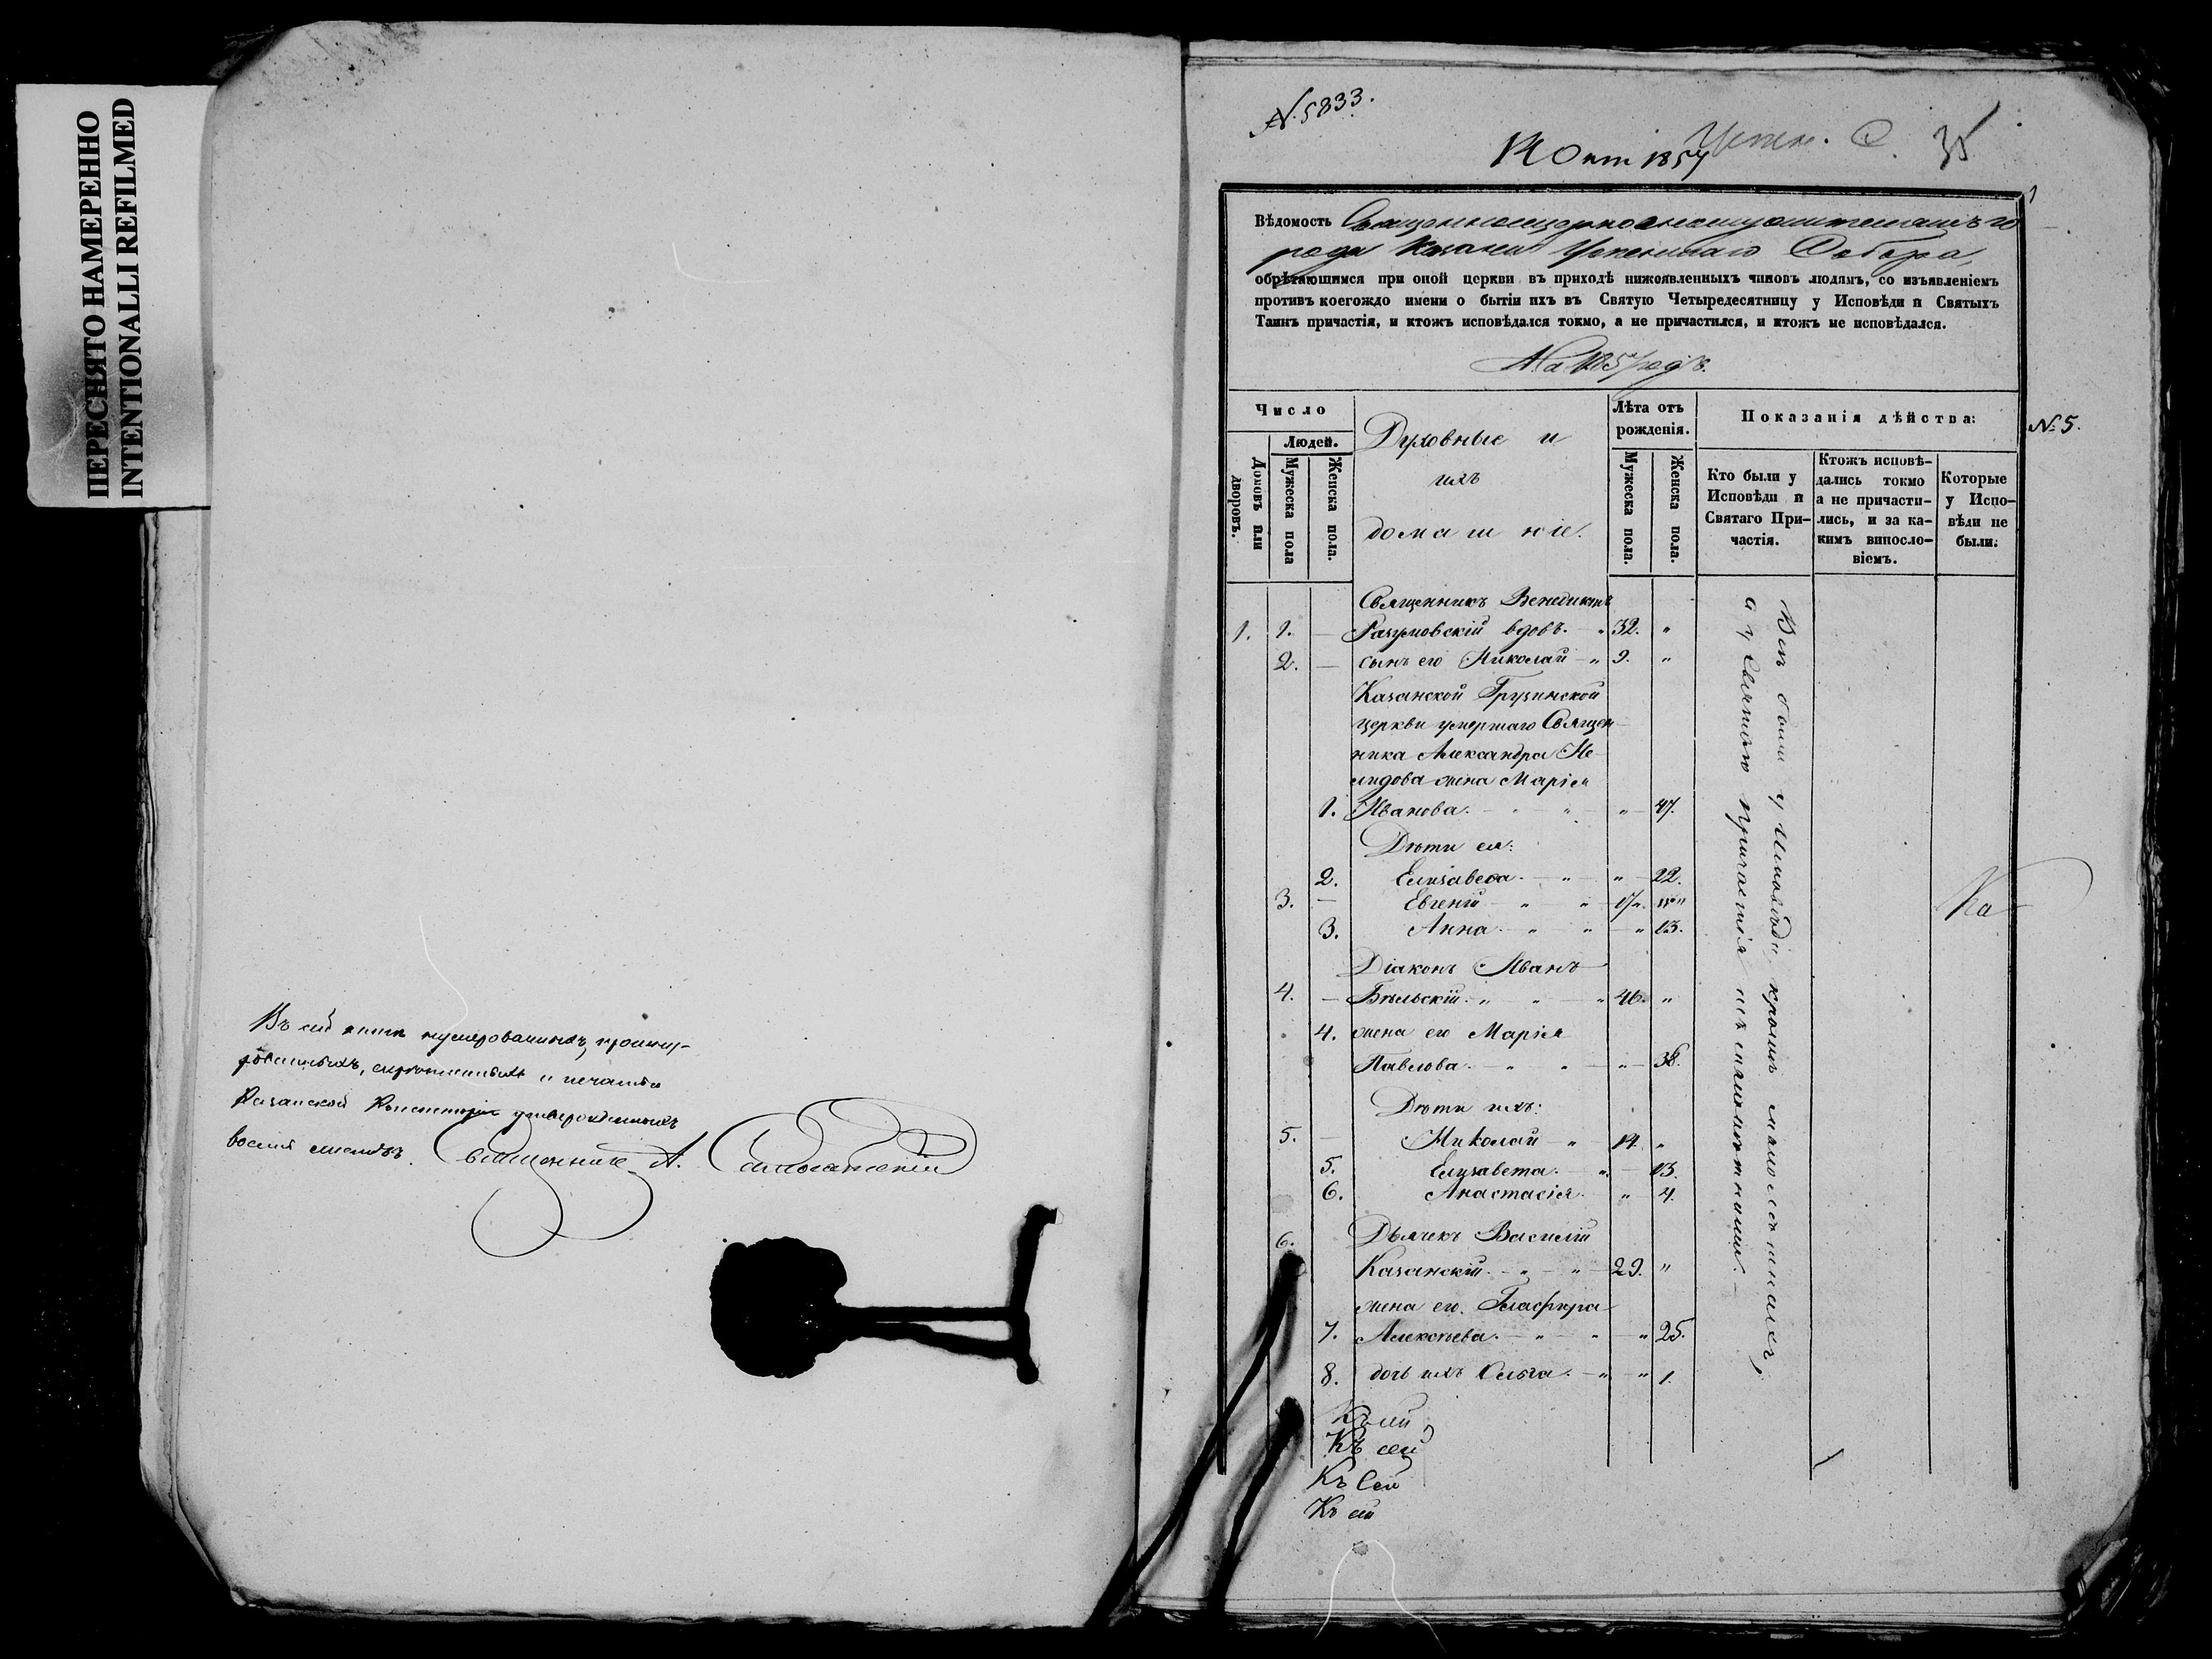 ПЕРЕСНЯТО НАМЕРЕННО
INTENTIONALLI REFILMED
Въ сей книгѣ нумерованныхъ, прошну-
рованныхъ, скрѣпленныхъ и печатью
Казанской Консисторіи утвержденныхъ
восемь листовъ. Священникъ А.
№ 5833.
Успен. С. 35
14 Окт 1857
1
Вѣдомость Священноцерковнослужителямъ го
рода Казани Успенскаго Собора,
обрѣтающимся при оной церкви въ приходѣ нижоявленныхъ чиновъ людямъ, со изъявленіемъ
противъ коегождо имени о бытіи ихъ въ Святую Четыредесятницу у Исповѣди и Святыхъ
Таинъ причастія, и ктожъ исповѣдался токмо, а не причастился, и ктожъ не исповѣдался.
На 1857 годъ.
Число
Людей.
Домовъ или дворовъ.
Мужеска пола
Женска пола.
Духовные и
ихъ
домашніе.
Лѣта отъ рожденія.
Мужеска пола.
Женска пола.
Показанія дѣйства:
Кто были у Исповѣди и Святаго При-частія.
Ктожъ исповѣ-дались токмо а не причасти-лись, и за ка-кимъ винослo-віемъ.
Которые у Испо-вѣди не были.
№ 5.
Священникъ Венедиктъ
1. 1. — Разумовскій вдовъ. — " 32. "
2. — сынъ его Николай — " 9. "
Казанской Грузинской
церкви умершаго Священ-
ника Александра Не-
лидова жена Марія
1. Иванова. — " — " — " — 47.
Дѣти ея:
2. Елизавеѳа. — " — " — 22.
3. — Евгеній — " — " — 17. "
3. Анна. — " — " — " 13.
Діаконъ Иванъ
4. — Бѣльскій. " — " — " 46. "
4. жена его Марія
Павлова. — " — " — " — 38.
Дѣти ихъ:
5. — Николай — " — 14. "
5. Елизавета. — " — 13.
6. Анастасія. — " — 4.
6. Дьячекъ Василій
Казанскій. — " — " — 29. "
жена его Глафира
7. Алексѣева. — " — " — " 25.
8. дочь ихъ Ольга. — " — " 1.
Всѣ были у Исповѣди кромѣ малолѣтнихъ,
а у Святаго причастія и съ малолѣтними. —
Ка
Къ сей
Къ сей
Къ Сей
Къ сей